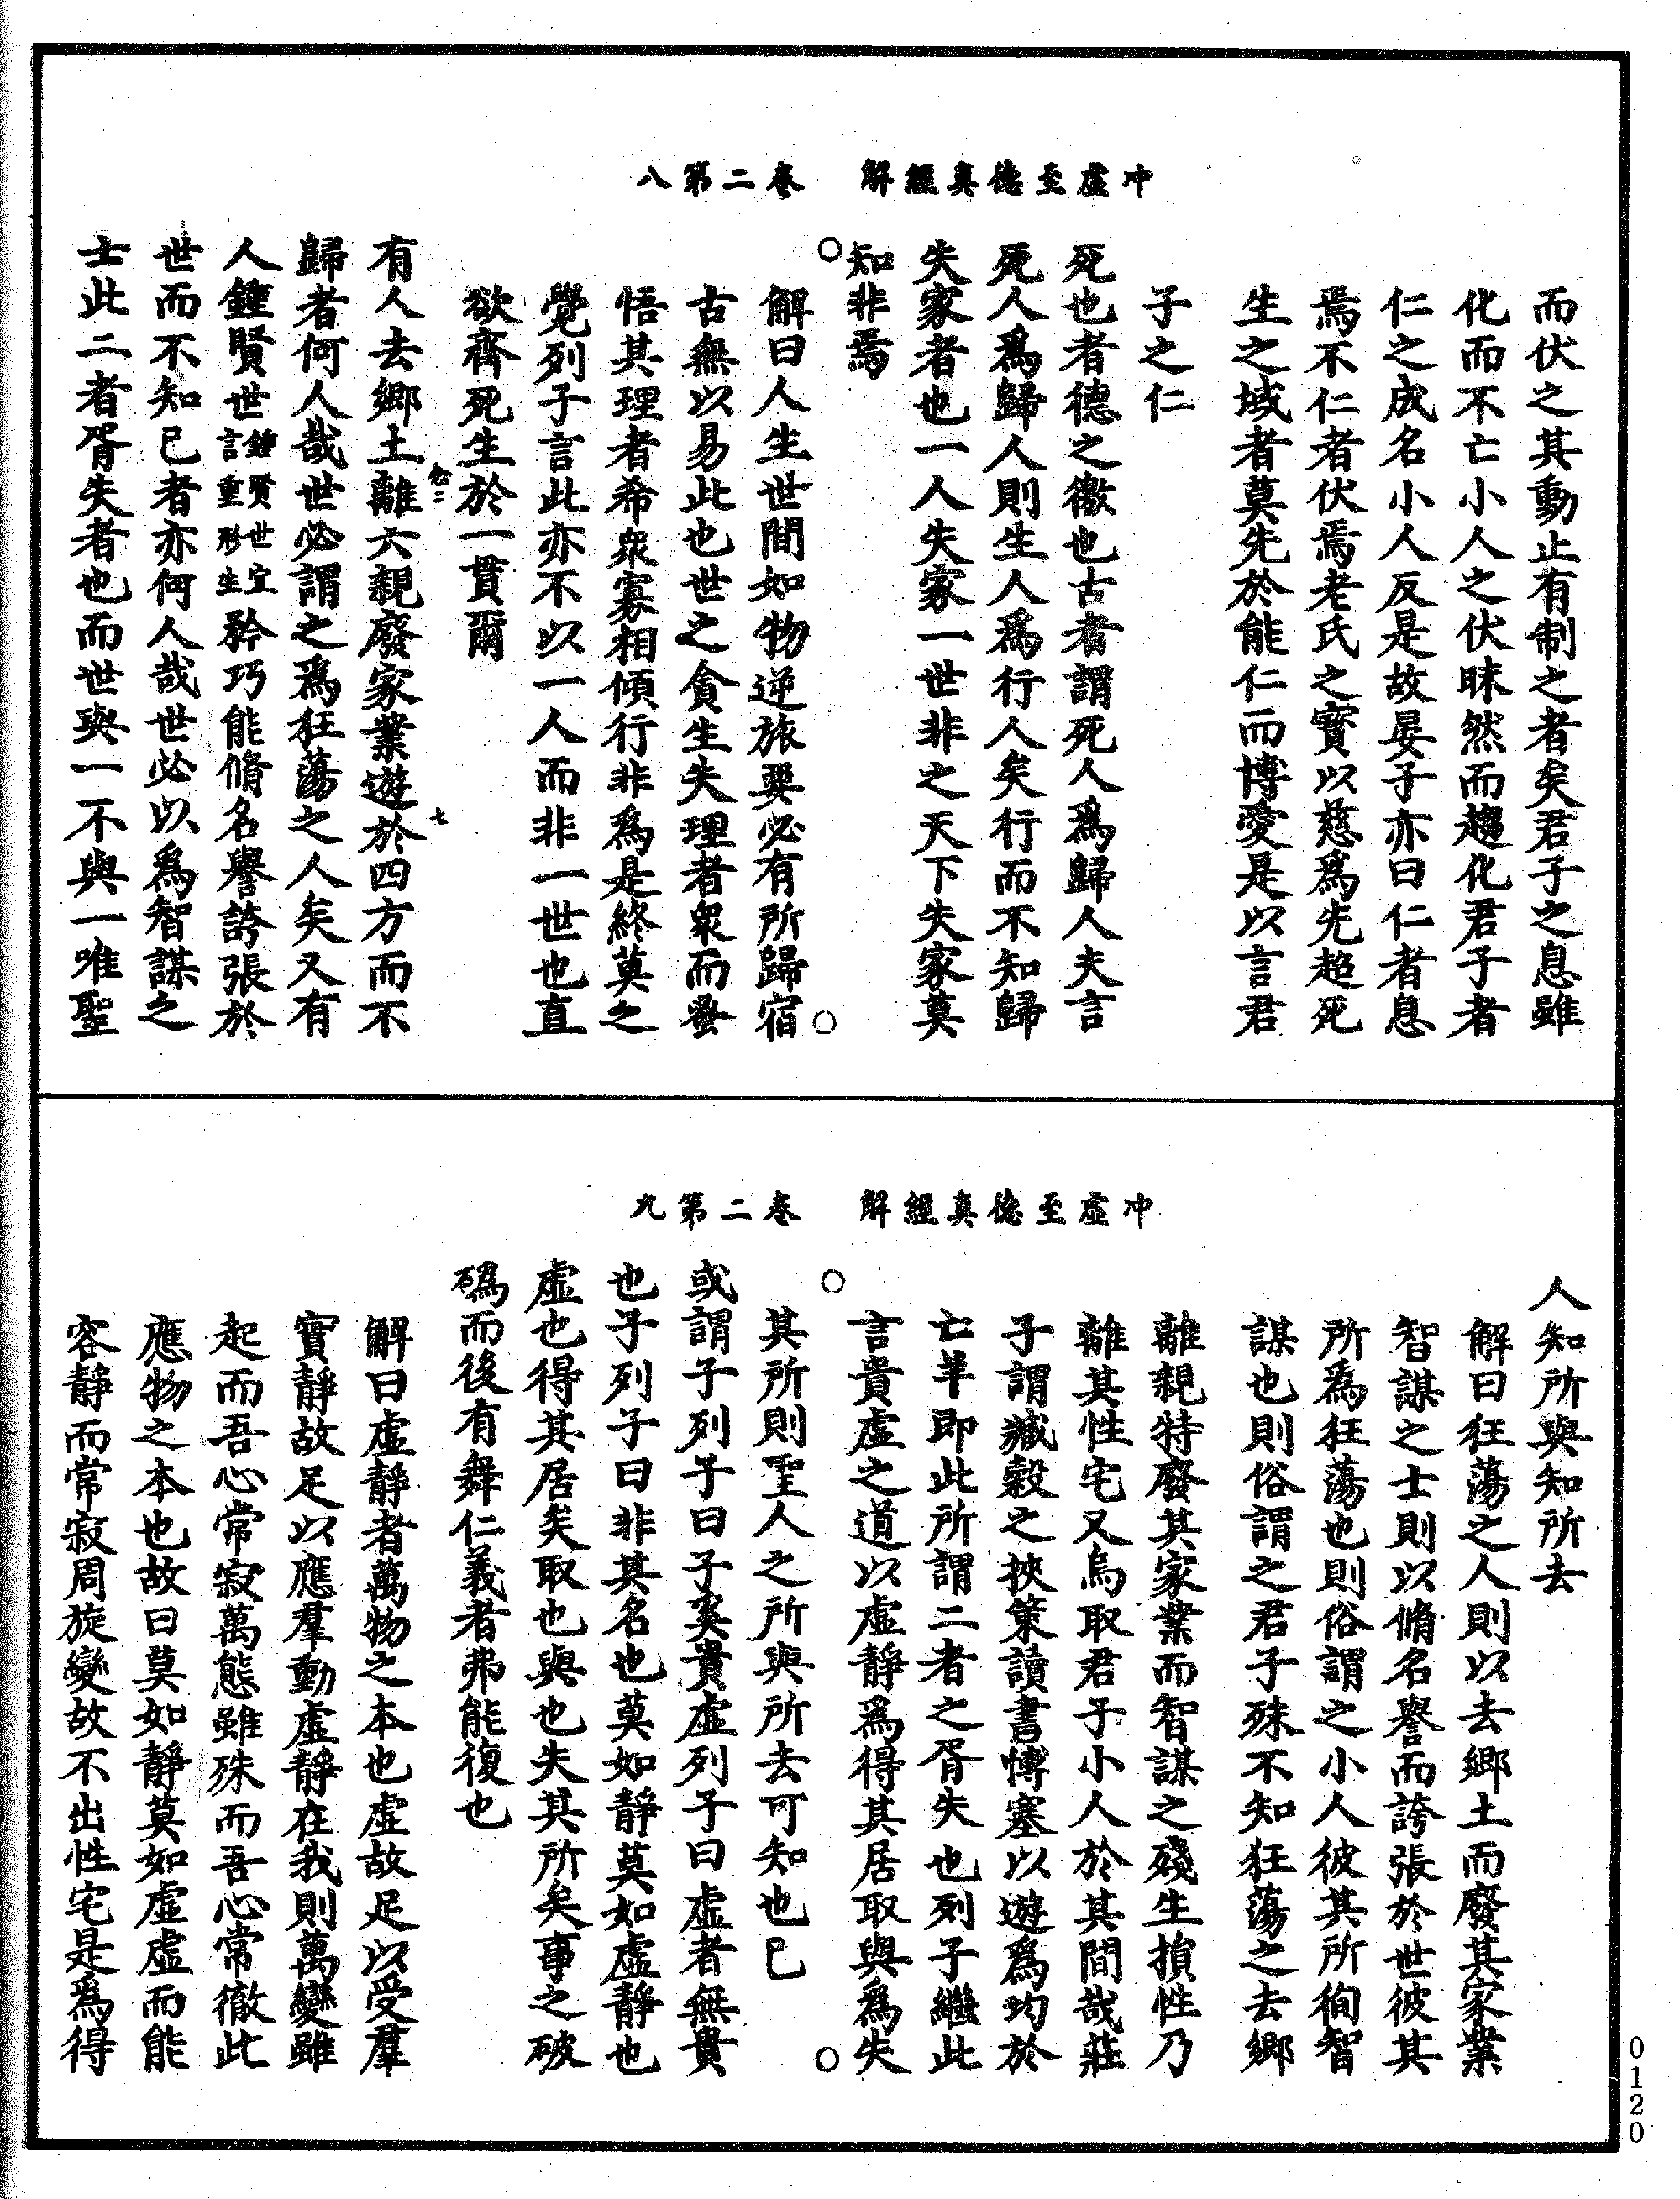 冲虛至德真經解　卷二第八
而伏之其動止有制之者矣君子之息雖
化而不亡小人之伏昧然而趨化君子者
仁之成名小人反是故晏子亦曰仁者息
焉不仁者伏焉老氏之寶以慈爲先超死
生之域者莫先於能仁而博愛是以言君
子之仁
死也者德之徼也古者謂死人爲歸人夫言
死人爲歸人則生人爲行人矣行而不知歸
失家者也一人失家一世非之天下失家莫
知非焉
解曰人生世間如物逆旅要必有所歸宿
古無以易此也世之貪生失理者衆而蚤
悟其理者希衆寡相傾行非爲是終莫之
覺列子言此亦不以一人而非一世也直
欲齊死生於一貫爾
有人去鄉土離六親廢家業遊於四方而不
歸者何人哉世必謂之爲狂蕩之人矣又有
人鍾賢世鍾賢世宜言重形生矜巧能脩名譽誇張於
世而不知已者亦何人哉世必以爲智謀之
士此二者胥失者也而世與一不與一唯聖
冲虛至德真經解　卷二第九
人知所與知所去
解曰狂蕩之人則以去鄉土而廢其家業
智謀之士則以脩名譽而誇張於世彼其
所爲狂蕩也則俗謂之小人彼其所徇智
謀也則俗謂之君子殊不知狂蕩之去鄉
離親特廢其家業而智謀之殘生損性乃
離其性宅又烏取君子小人於其間哉莊
子謂臧穀之挾策讀書愽塞以遊爲均於
亡羊即此所謂二者之胥失也列子繼此
言貴虛之道以虛靜爲得其居取與爲失
其所則聖人之所與所去可知也已
或謂子列子曰子奚貴虛列子曰虛者無貴
也子列子曰非其名也莫如靜莫如虛靜也
虛也得其居矣取也與也失其所矣事之破
䃣而後有舞仁義者弗能復也
解曰虛靜者萬物之本也虛故足以受羣
實靜故足以應羣動虛靜在我則萬變雖
起而吾心常寂萬態雖殊而吾心常徹此
應物之本也故曰莫如靜莫如虛虛而能
容靜而常寂周旋變故不出性宅是爲得
0120